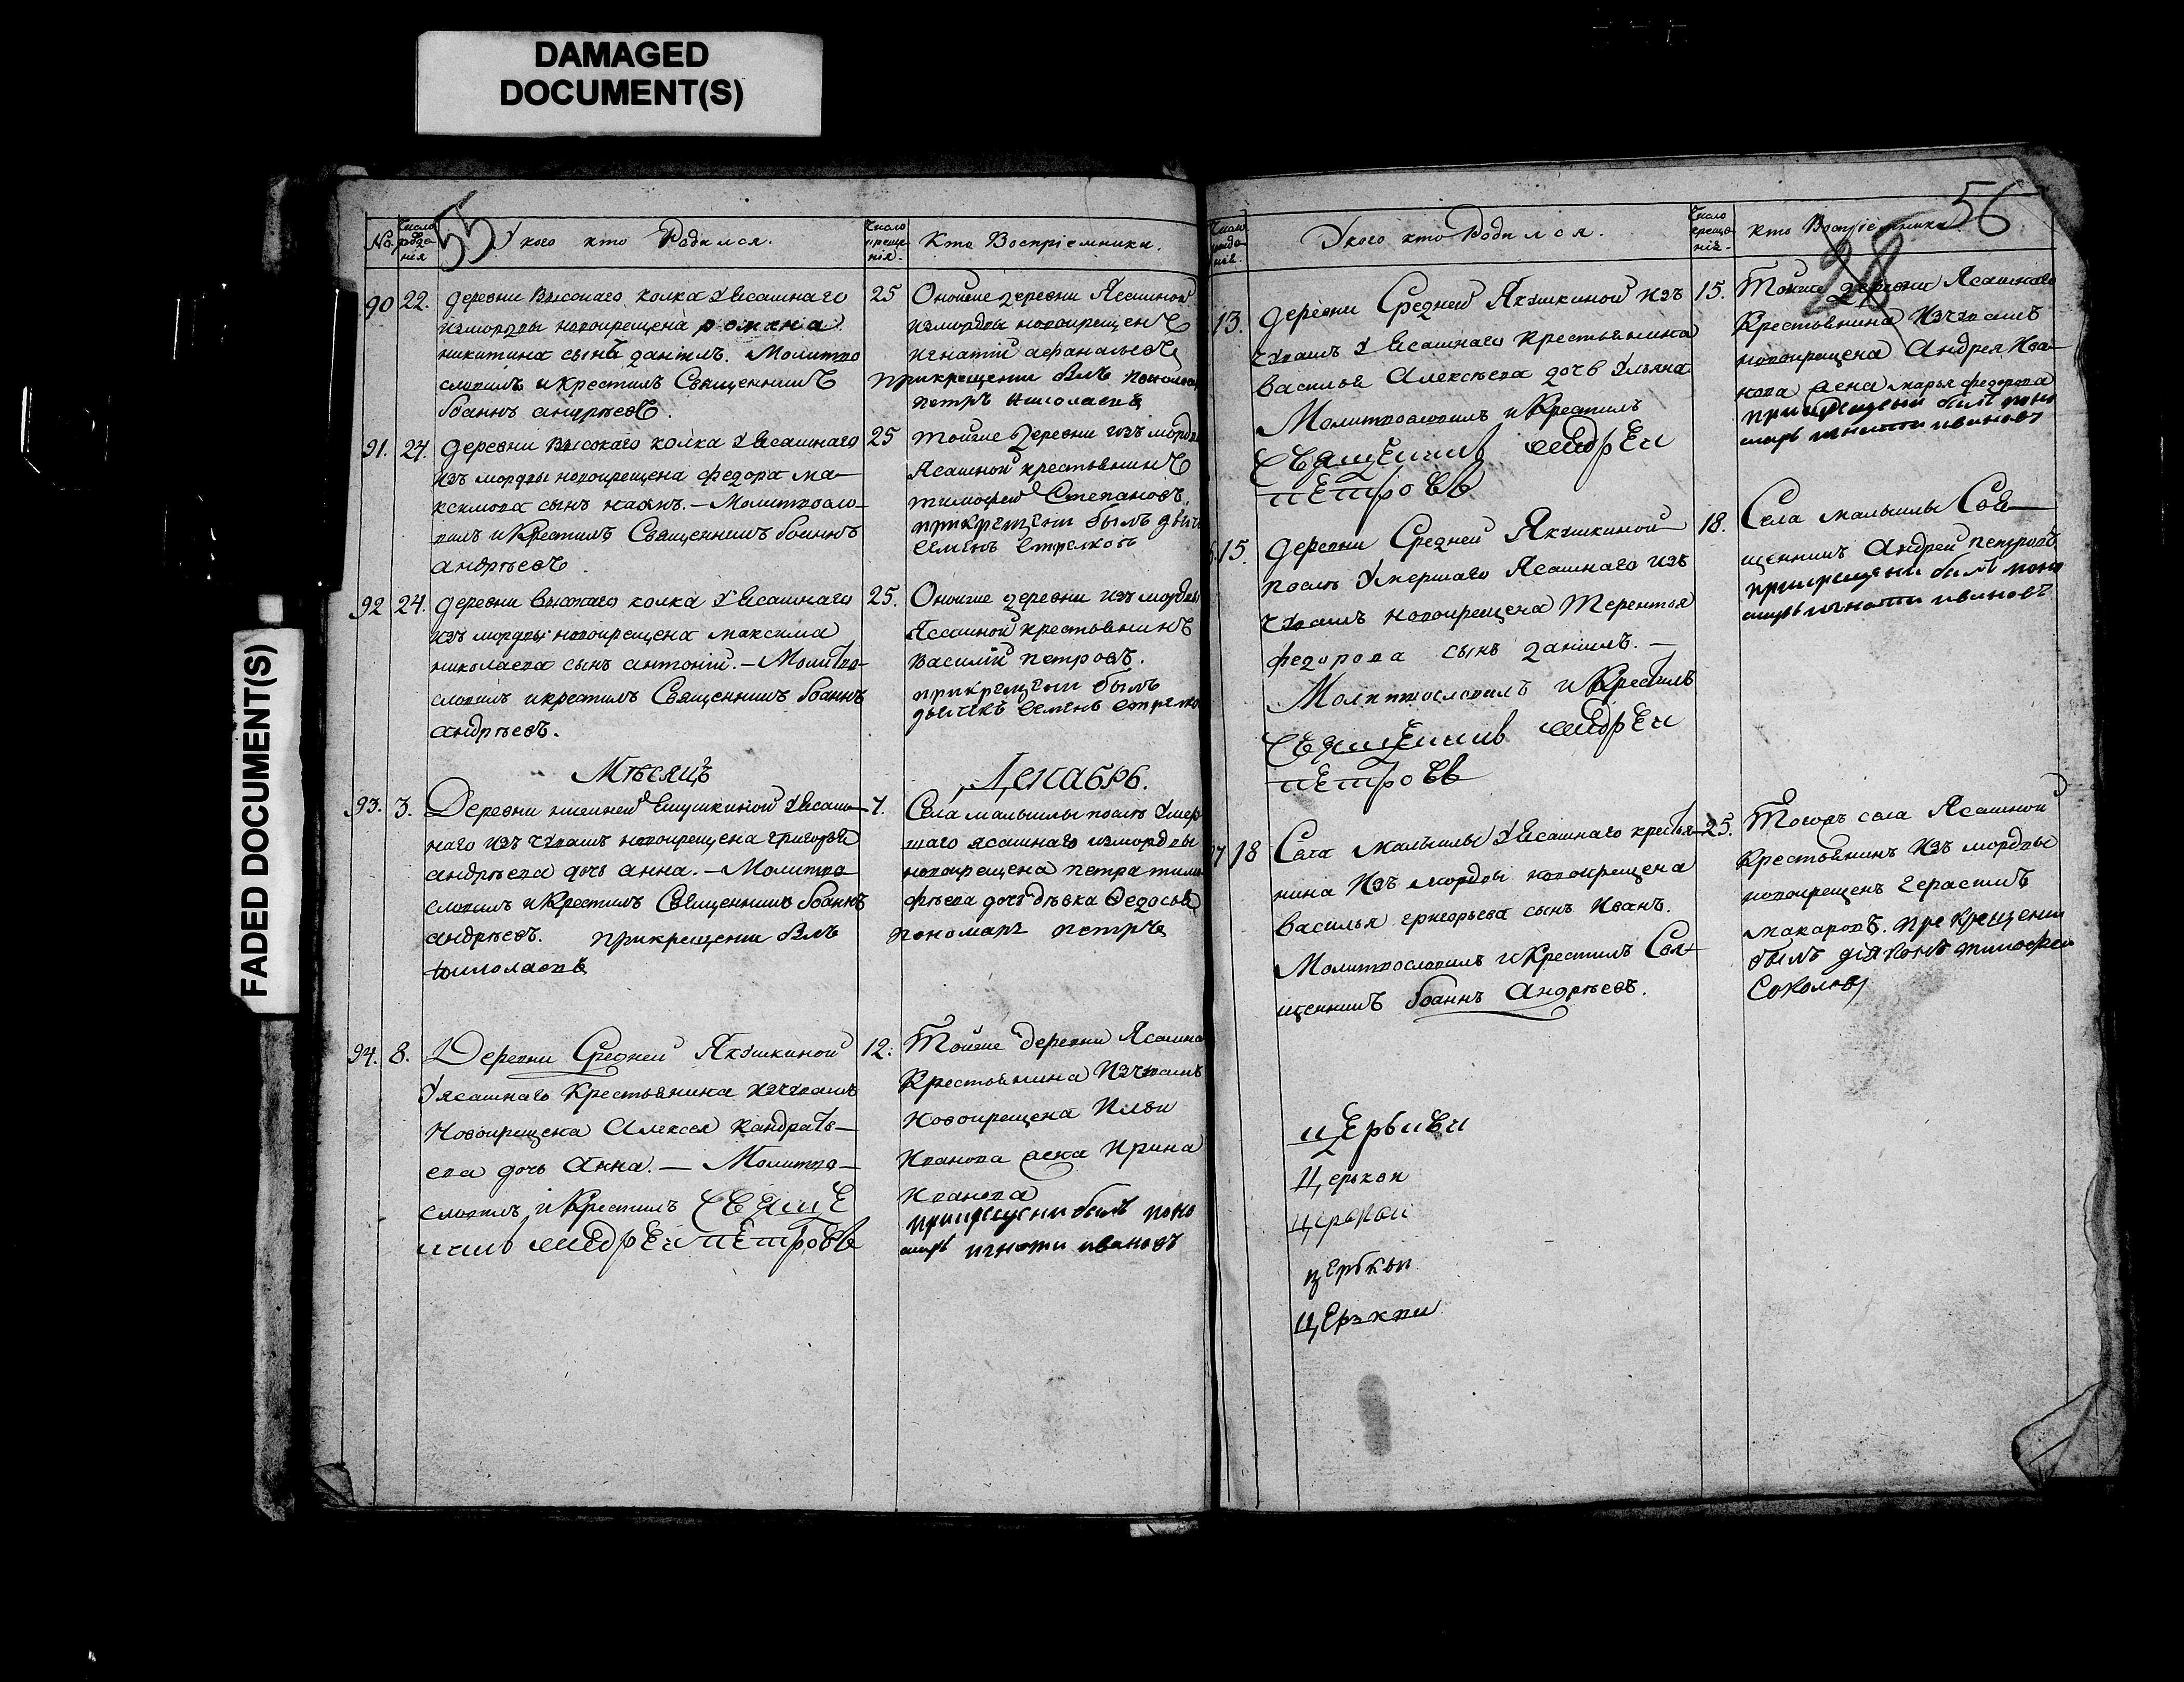 DAMAGED
DOCUMENT(S)
FADED DOCUMENT(S)
55
No. Число рожде-нія У кого кто Родился. Число креще-нія. Кто Воспріемники.
90 22. деревни Высокаго колка У Ясашнаго
измордвы новокрещена романа
никитина сынъ данiилъ. Молитво
словилъ и крестилъ Священникъ
Iоаннъ андрѣевъ.
25 Оноиже деревни Ясашной
измордвы новокрещенъ
игнатiй афанасьевъ
прикрещении былъ пономарь
петръ николаевъ
91. 24. деревни высокаго колка У Ясашнаго
изъ мордвы новокрещена федора ма-
ксимова сынъ иванъ. — Молитвосло-
вилъ и Крестилъ Священникъ Iоаннъ
андрѣевъ.
25 тойже деревни изъ мордвы
Ясашной крестьянинъ
тимофей Степановъ.
прикрещении былъ дьяч
Семенъ Стрелковъ
92 24. деревни высокаго колка У Ясашнаго
изъ мордвы новокрещена максима
николаева сынъ антонiй. — Молитво-
словилъ и крестилъ Священникъ Iоаннъ
андрѣевъ.
25. Оноиже деревни изъ мордвы
Ясашной крестьянинъ
Василiй петровъ.
прикрещении былъ
дьячекъ Семенъ Стрелко
Мѣсяцъ Декабрь.
93. 3. Деревни нижней Якушкиной У Ясаш-
наго изъ чувашъ новокрещена григорья
андрѣева дочь анна. — Молитво-
словилъ и Крестилъ Священникъ Iоаннъ
андрѣевъ. прикрещении былъ
николаевъ
7. Села малыклы послѣ Умер
шаго ясашнаго измордвы
новокрещена петра тимо
фѣева дочь дѣвка Ѳедосья
пономарь петръ
94. 8. Деревни Средней Якушкиной
У ясашнаго Крестьянина изчувашъ
Новокрещена Алексея Кандрать-
ева дочь Анна. — Молитво-
словилъ и Крестилъ СвЯщЕ
нникъ андрЕй пЕтровъ
12. Тойже деревни Ясашна
Крестьянина Изчувашъ
Новокрещена Ильи
Иванова жена Ирина
Иванова
прикрещении былъ поно
марь игнати ивановъ
56
28
Число рожде-нiя. У кого кто Родился. Число креще-нiя. Кто Воспрiемники.
13. деревни Средней Якушкиной изъ
чувашъ У Ясашнаго Крестьянина
Василья Алексѣева дочь Ульяна
Молитвословилъ и Крестилъ
СвЯщЕнникъ андрЕй
пЕтровъ
15. Тойже деревни Ясашнаго
Крестьянина Изчувашъ
новокрещена Андрея Ива-
нова жена марья федорова
прикрещении былъ поно
марь игнати ивановъ
15. деревни Средней Якушкиной
послѣ Умершаго Ясашнаго изъ
чувашъ новокрещена Терентья
федорова сынъ данiилъ. —
Молитвословилъ и Крестилъ
СвЯщЕнникъ андрЕй
пЕтровъ
18. Села малыклы Свя-
щенникъ Андрей петровъ
прикрещении былъ поно
марь игнати ивановъ
18 Села Малыклы У Ясашнаго крестья-
нина Изъ мордвы новокрещена
Василья григорьева сынъ Иванъ.
Молитвословилъ и Крестилъ Свя-
щенникъ Iоаннъ Андрѣевъ.
25. Тогожъ села Ясашной
Крестьянинъ Изъ мордвы
новокрещенъ герасимъ
макаровъ. при крещении
былъ дiяконъ тимофей
Соколовъ
цЕркв Еи
Церкви
церкви
цЕркви
цЕркви